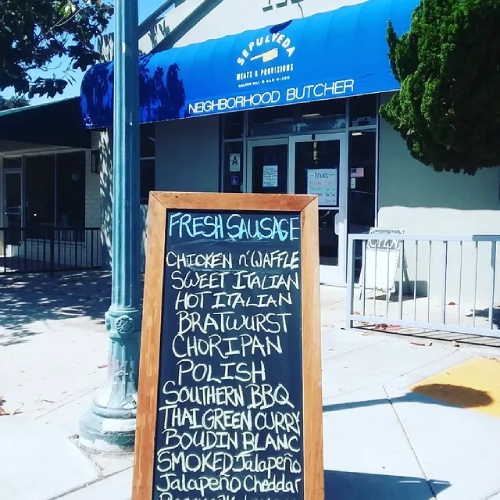 SEPULVEDA
MEATS & PROVISIONS
NEIGHBORHOOD BUTCHER
OPEN
FRESH SAUSAGE
CHICKEN n' WAFFLE
SWEET ITALIAN
HOT ITALIAN
BRATWURST
CHORIPAN
POLISH
SOUTHERN BBQ
THAI GREEN CURRY
BOUDIN BLANC
SMOKED Jalapeño
Jalapeño Cheddar